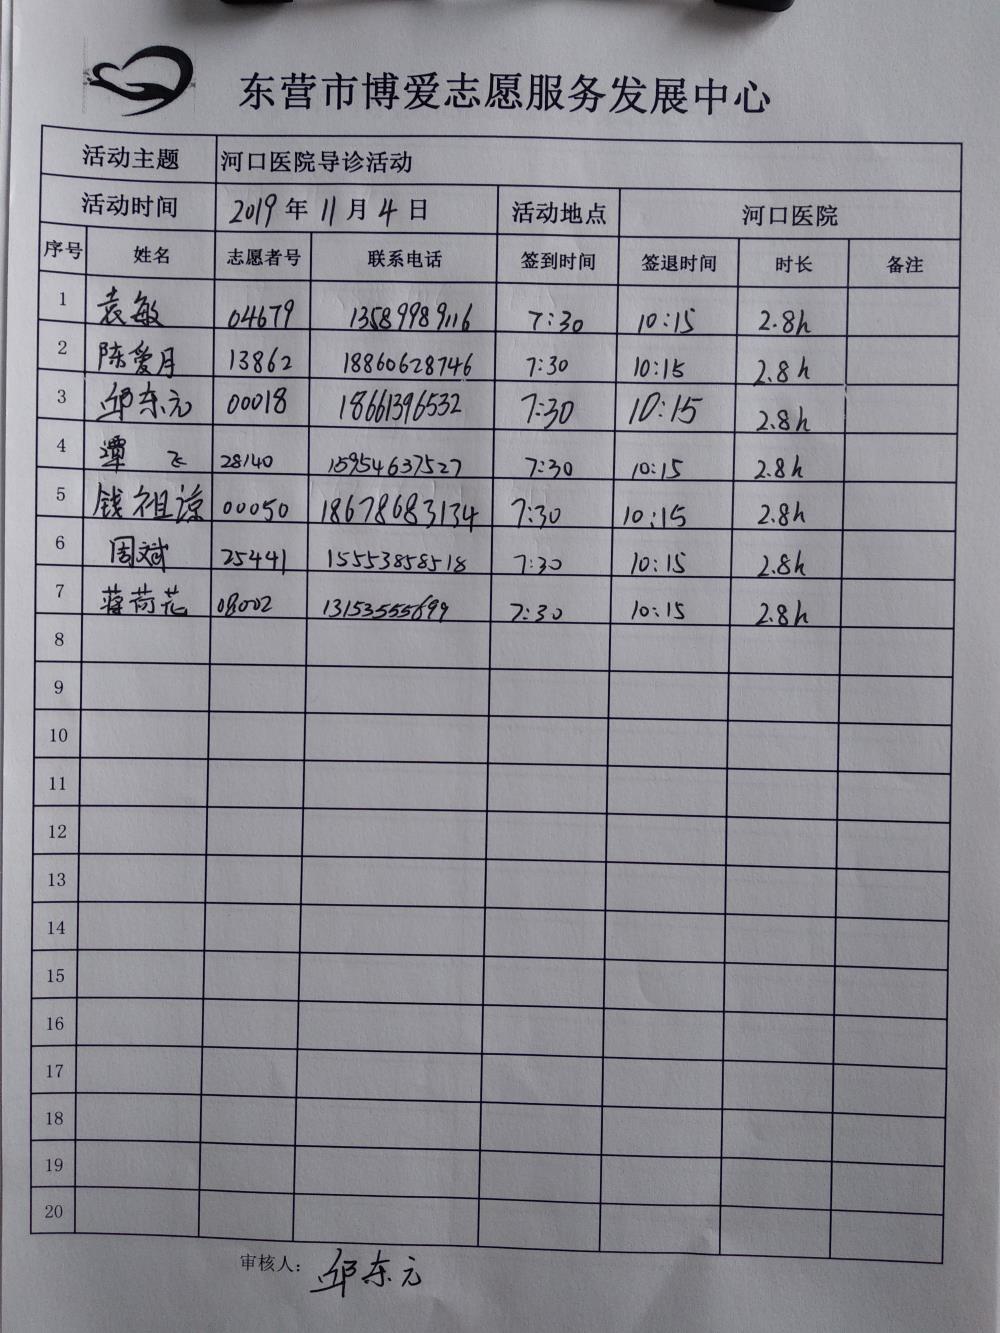 东营市博爱志愿服务发展中心
活动主题 河口医院导诊活动
活动时间 2019年11月4日 活动地点 河口医院
序号 姓名 志愿者号 联系电话 签到时间 签退时间 时长 备注
1 袁敏 04679 13589989116 7:30 10:15 2.8h
2 陈爱月 13862 18860628746 7:30 10:15 2.8h
3 邱东元 00018 18661396532 7:30 10:15 2.8h
4 潭飞 28140 15954637527 7:30 10:15 2.8h
5 钱祖谅 00050 18678683134 7:30 10:15 2.8h
6 周斌 25441 15553858518 7:30 10:15 2.8h
7 蒋荷花 08002 13153555699 7:30 10:15 2.8h
8
9
10
11
12
13
14
15
16
17
18
19
20
审核人: 邱东元